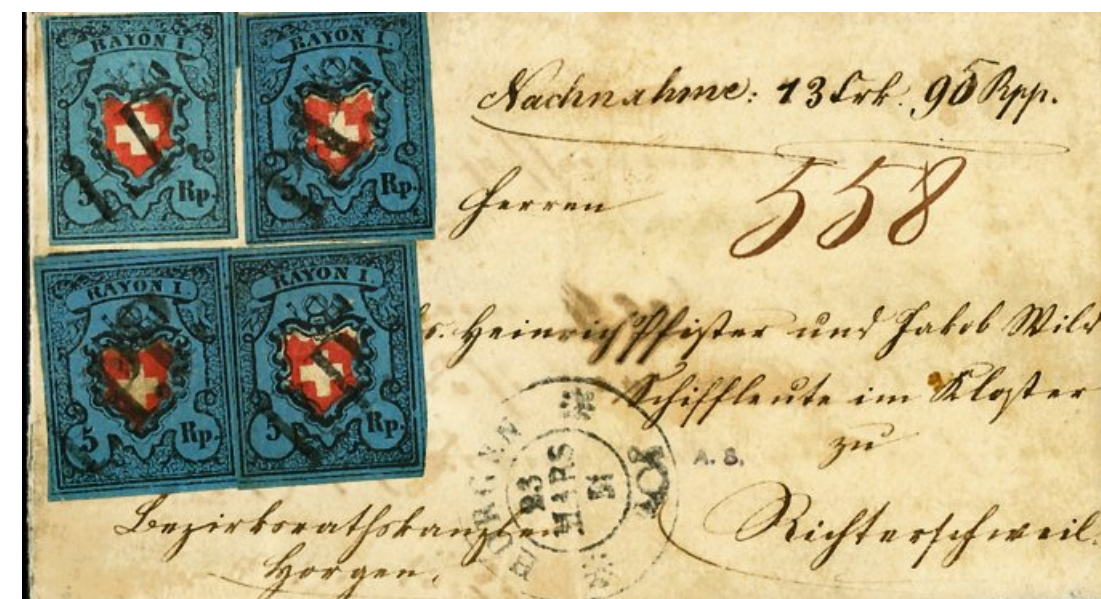 RAYON I. RAYON I.
5 Rp. 5 Rp.
RAYON I. RAYON I.
5 Rp. 5 Rp.
Nachnahme: 13 Frk. 95 Rpp.
558
Herren
Heinrich Pfister und Jakob Wild
Schiffleute im Kloster
zu
Richterschweil.
A. S.
HORGEN
23
MARS
51
Bezirksrathskanzlei
Horgen.